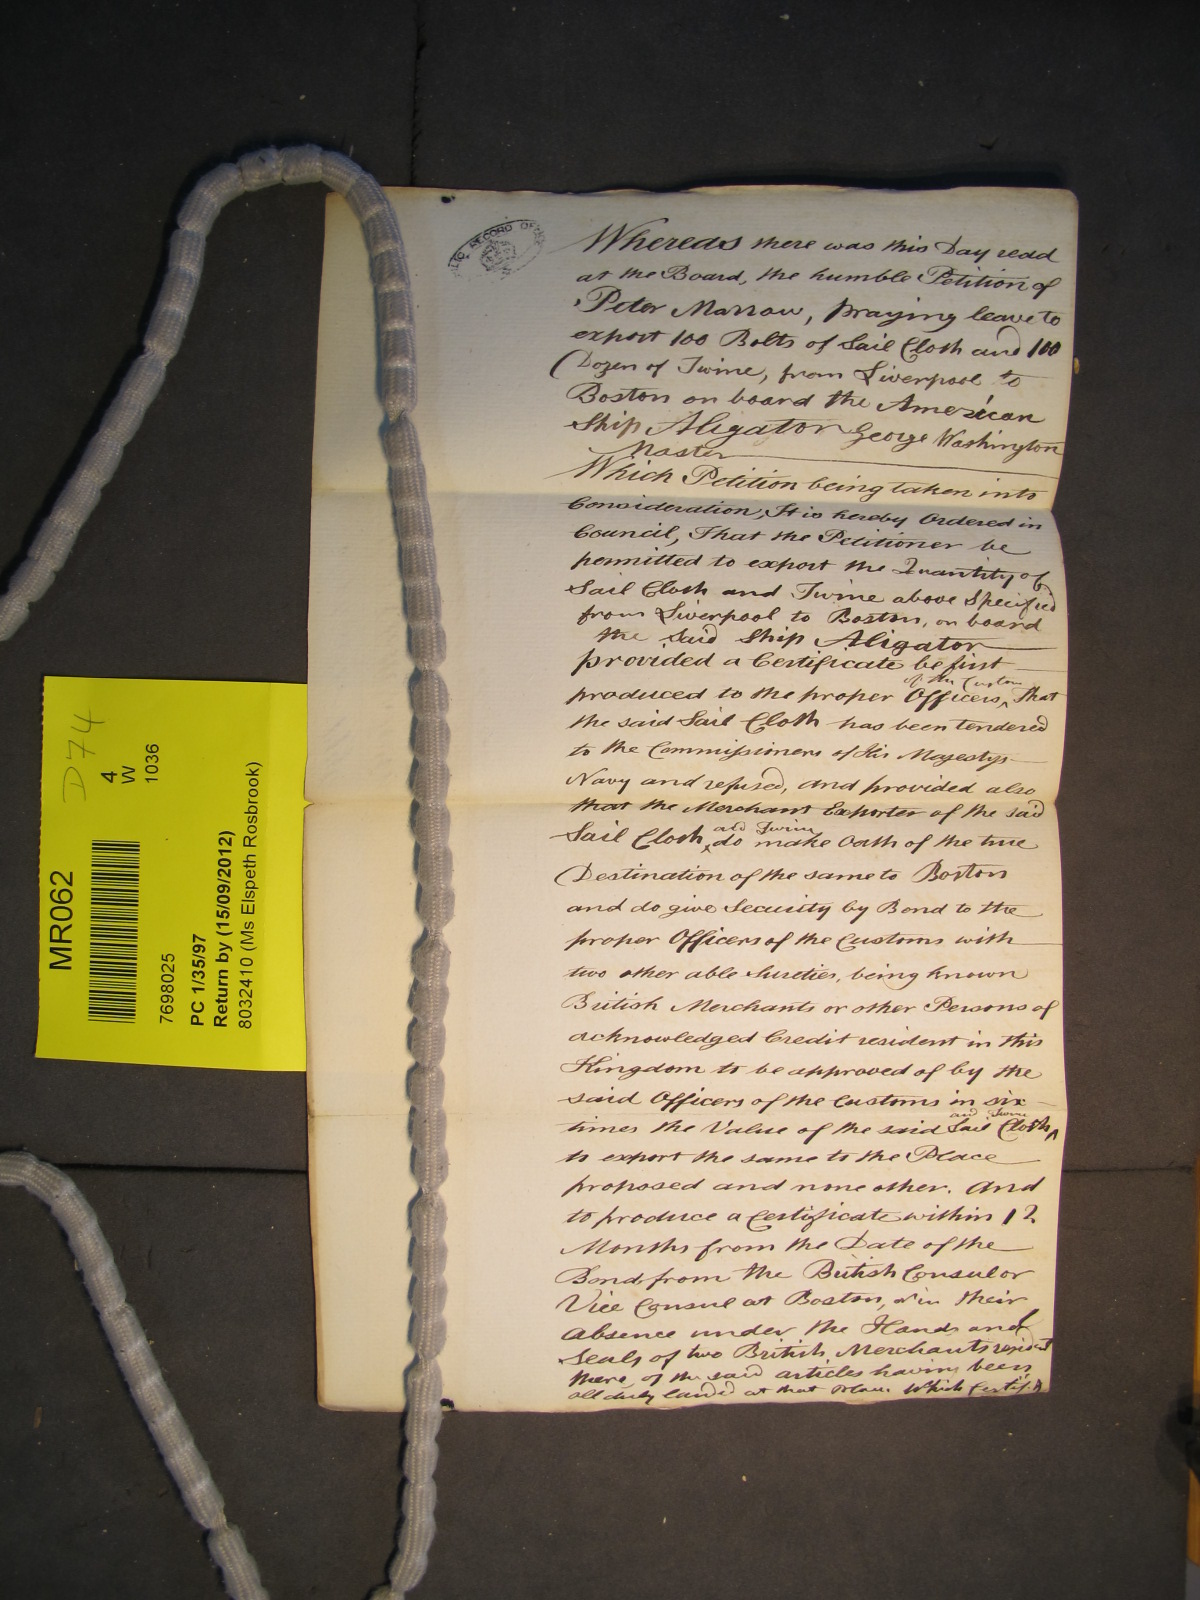 PUBLIC RECORD OFFICE
Whereas there was this Day read
at the Board, the humble Petition of
Peter Marrow, praying leave to
export 100 Bolts of Sail Cloth and 100
Dozen of Twine, from Liverpool to
Boston on board the American
Ship Aligator George Washington
Master
Which Petition being taken into
Consideration, It is hereby Ordered in
Council, That the Petitioner be
permitted to export the Quantity of
Sail Cloth and Twine above Specified
from Liverpool to Boston, on board
the said Ship Aligator
provided a Certificate be first
of the Customs
produced to the proper Officers, That
the said Sail Cloth has been tendered
to the Commissioners of His Majestys
Navy and refused, and provided also
that the Merchant Exporter of the said
and Twine
Sail Cloth, do make Oath of the true
Destination of the same to Boston
and do give Security by Bond to the
proper Officers of the Customs with
two other able Sureties, being known
British Merchants or other Persons of
acknowledged Credit resident in this
Kingdom to be approved of by the
said Officers of the Customs in six
and Twine
times the Value of the said Sail Cloth
to export the same to the Place
proposed and none other. And
to produce a Certificate within 12
Months from the Date of the
Bond from the British Consul or
Vice Consul at Boston, or in their
Absence under the Hands and
Seals of two British Merchants resident
there of the said articles having been
all duly landed at that Place Which
D74
4
W
1036
MR062
7698025
PC 1/35/97
Return by (15/09/2012)
8032410 (Ms Elspeth Rosbrook)